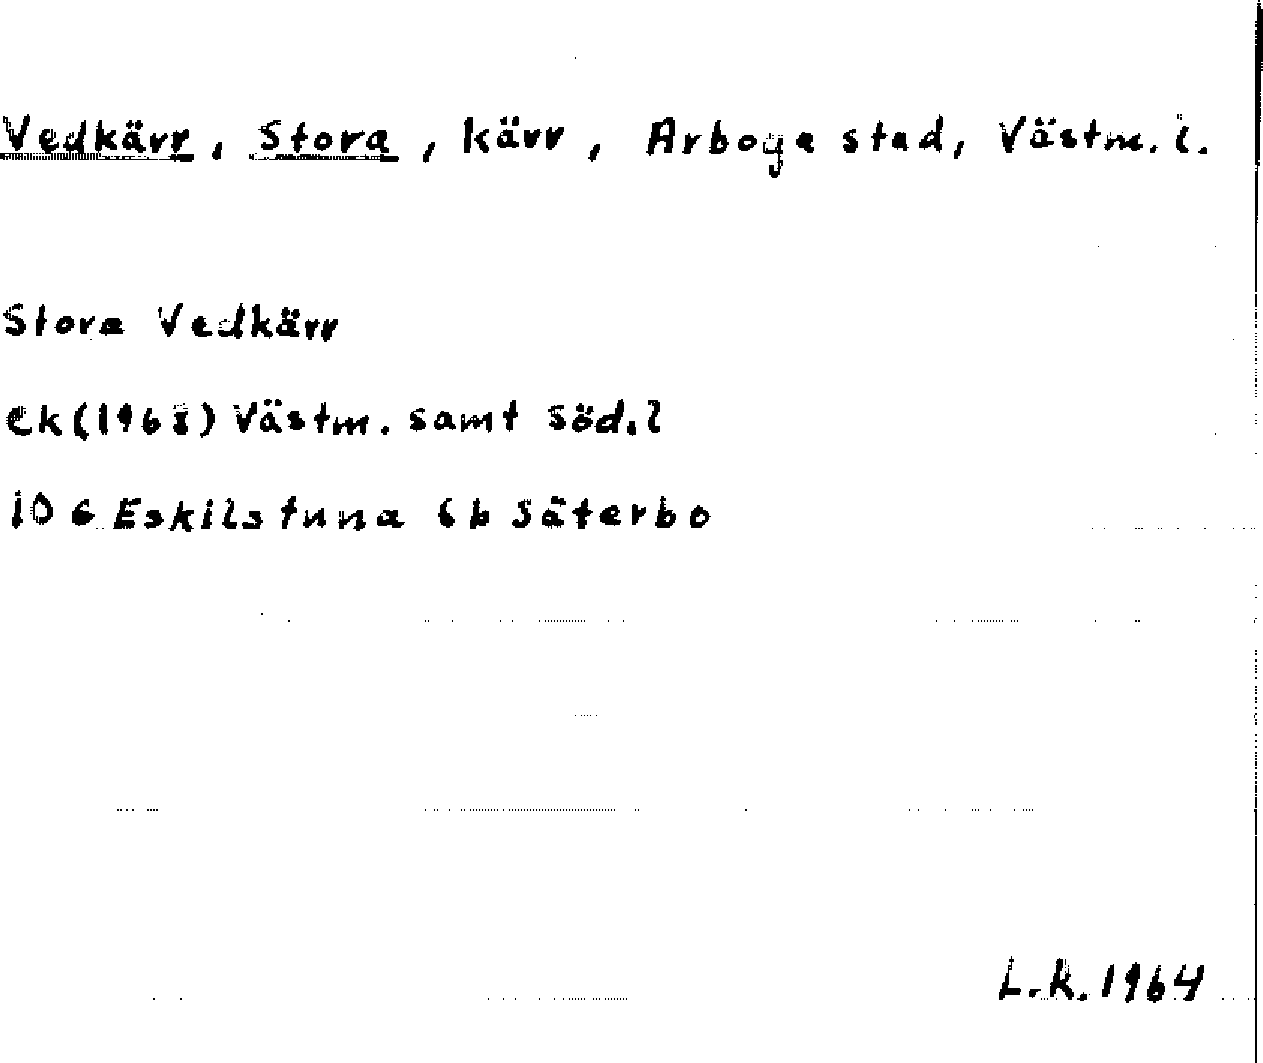 Vedkärr, Stora, kärr, Arboga stad, Västm. l.
Stora Vedkärr
Ek Västm. samt Söd. l
10 G Eskilstuna 6b Säterbo
L.K. 1964